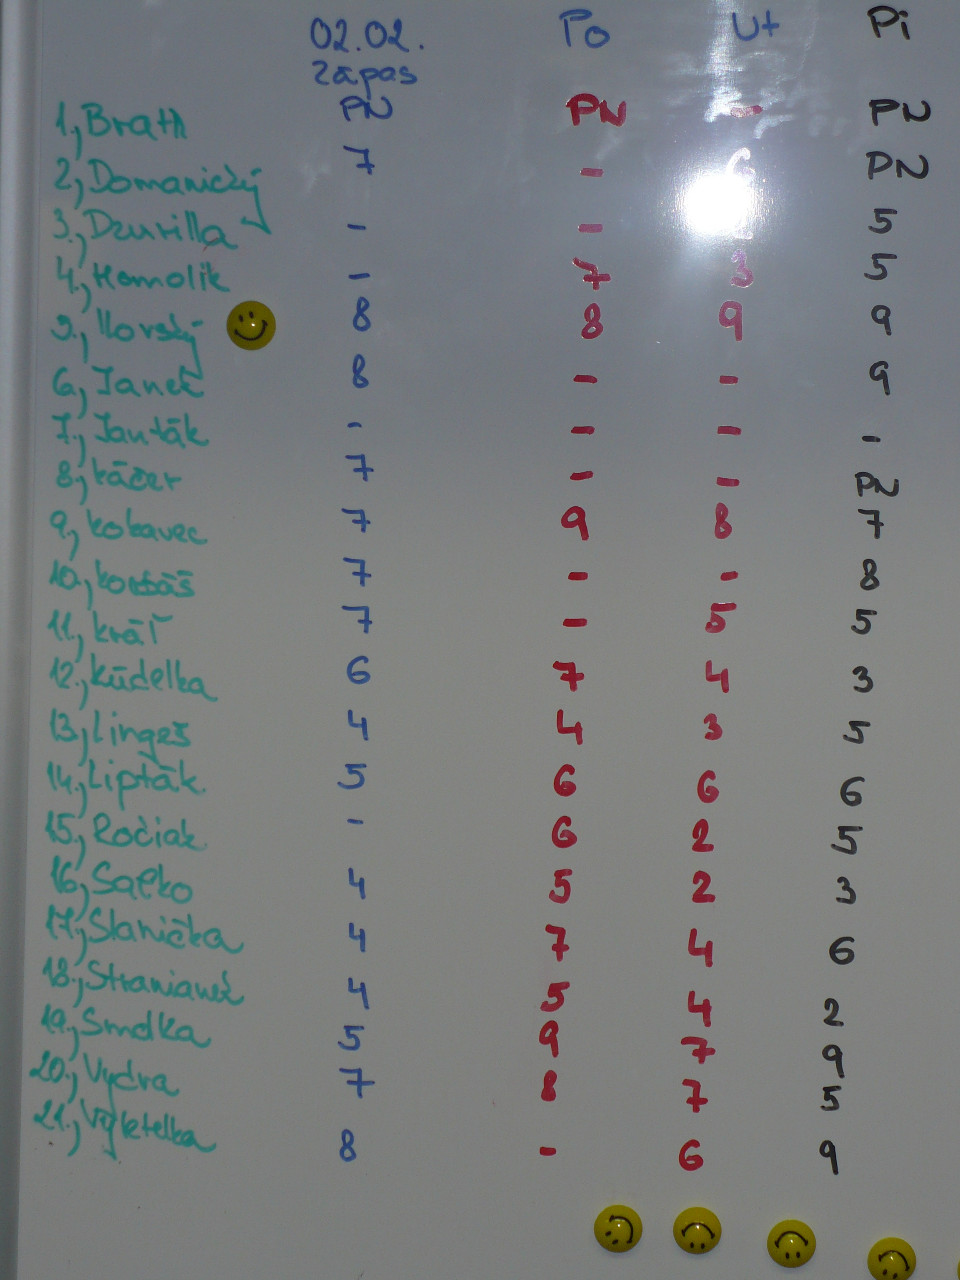 02.02. Po Ut Pi
Zápas
1, Brath PN PN - PN
2, Domanický 7 - 6 PN
3, Dzurilla - - 5
4, Homolik - 7 3 5
5, Ilovský 8 8 9 9
6, Janek 8 - - 9
7, Janták - - - -
8, Káčer 7 - - PN
9, Kokavec 7 9 8 7
10, 7 - - 8
11, Kráľ 7 - 5 5
12, Kúdelka 6 7 4 3
13, Lingeš 4 4 3 5
14, Lipták 5 6 6 6
15, Ročiak - 6 2 5
16, Salko 4 5 2 3
17, Slanička 4 7 4 6
18, Stranianek 4 5 4 2
19, Smolka 5 9 7 9
20, Vydra 7 8 7 5
21, Vykletelka 8 - 6 9